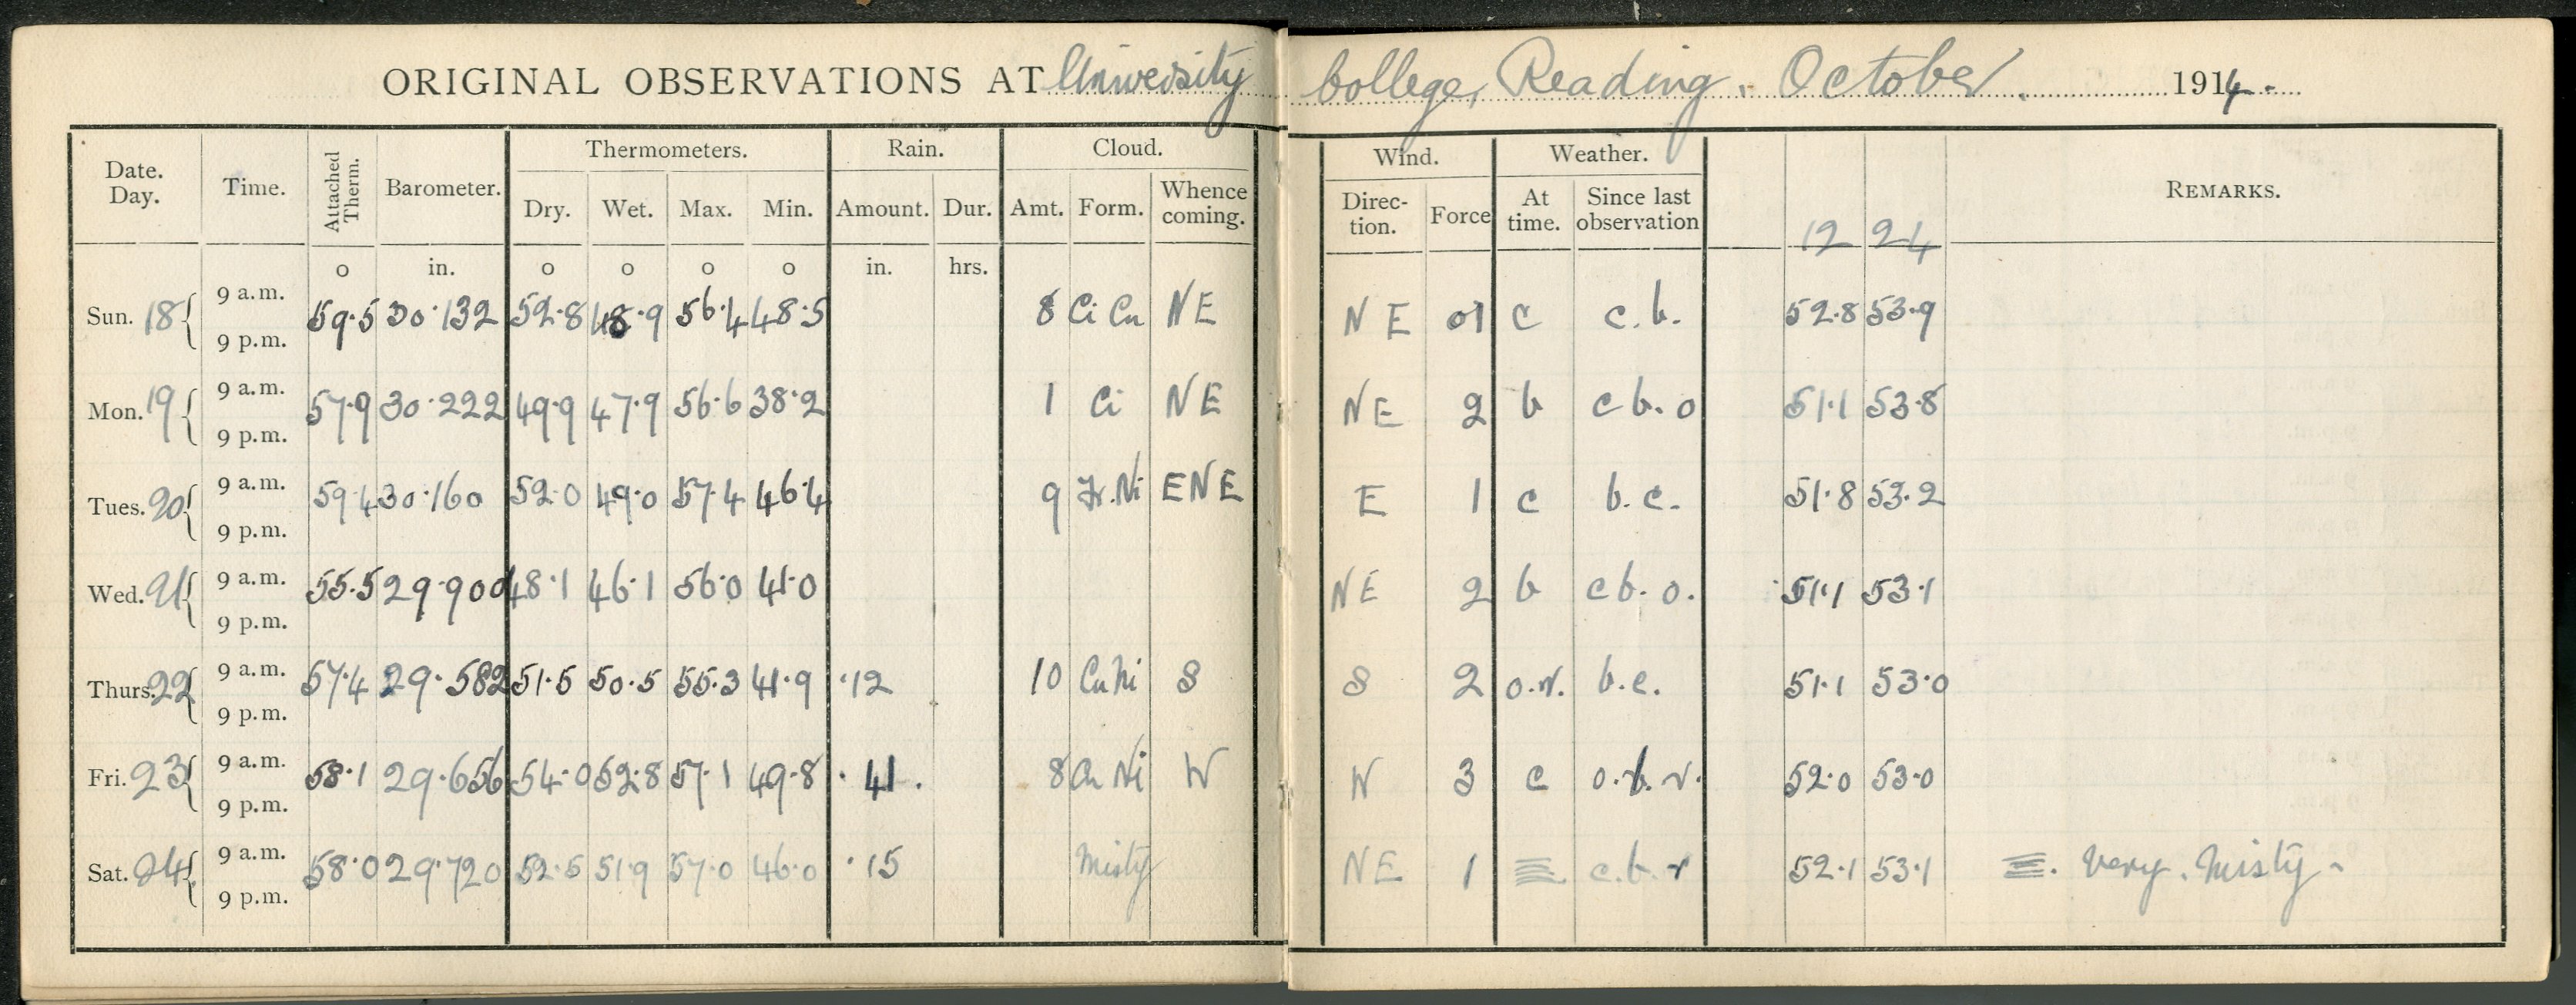 ORIGINAL OBSERVATIONS AT University College, Reading. October. 1914.
Date. Day. Time. Attached Therm. Barometer. Thermometers. Rain. Cloud. Wind. Weather. REMARKS.
Dry. Wet. Max. Min. Amount. Dur. Amt. Form. Whence coming. Direc- tion. Force At time. Since last observation 12 24
o in. o o o o in. hrs.
Sun. 18 9 a.m. 59.5 30.132 52.8 48.9 56.4 48.5 8 Ci Cu NE NE 01 c c.b. 52.8 53.9
9 p.m.
Mon. 19 9 a.m. 57.9 30.222 49.9 47.9 56.6 38.2 1 Ci NE NE 2 b c b. o 51.1 53.8
9 p.m.
Tues. 20 9 a.m. 59.4 30.160 52.0 49.0 57.4 46.4 9 Fr.Ni ENE E 1 c b.c. 51.8 53.2
9 p.m.
Wed. 21 9 a.m. 55.5 29.900 48.1 46.1 56.0 41.0 NE 2 b c b. o. 51.1 53.1
9 p.m.
Thurs. 22 9 a.m. 57.4 29.582 51.5 50.5 55.3 41.9 .12 10 Cu Ni S S 2 o.r. b.c. 51.1 53.0
9 p.m.
Fri. 23 9 a.m. 58.1 29.656 54.0 52.8 57.1 49.8 .41. 8 Cu Ni W W 3 c o.b.r. 52.0 53.0
9 p.m.
Sat. 24 9 a.m. 58.0 29.720 52.5 51.9 57.0 46.0 .15 Misty NE 1 ≡ c.b.r 52.1 53.1 ≡. Very. Misty.
9 p.m.